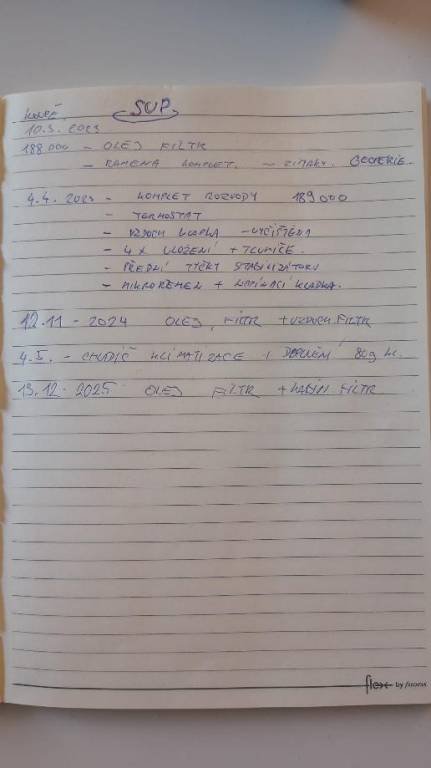 SUP
10.3.2023
188 000 - OLEJ FILTR
- RAMENA KOMPLET. - ZIMÁKY. GEOMERIE.
4.4.2023 - KOMPLET ROZVODY 189 000
- TERMOSTAT
- VZDUCH KLAPKA - VYČIŠTĚNA
- 4X ULOŽENÍ + TLUMIČE.
- PŘEDNÍ TYČKY STABILIZÁTORU
- MIKROŘEMEN + NAPÍNACÍ KLADKA.
12.11 - 2024 OLEJ, FILTR + VZDUCH FILTR
4.5. - CHLADIČ KLIMATIZACE 80g
13.12.2025 OLEJ FILTR + KABIN FILTR
flex by